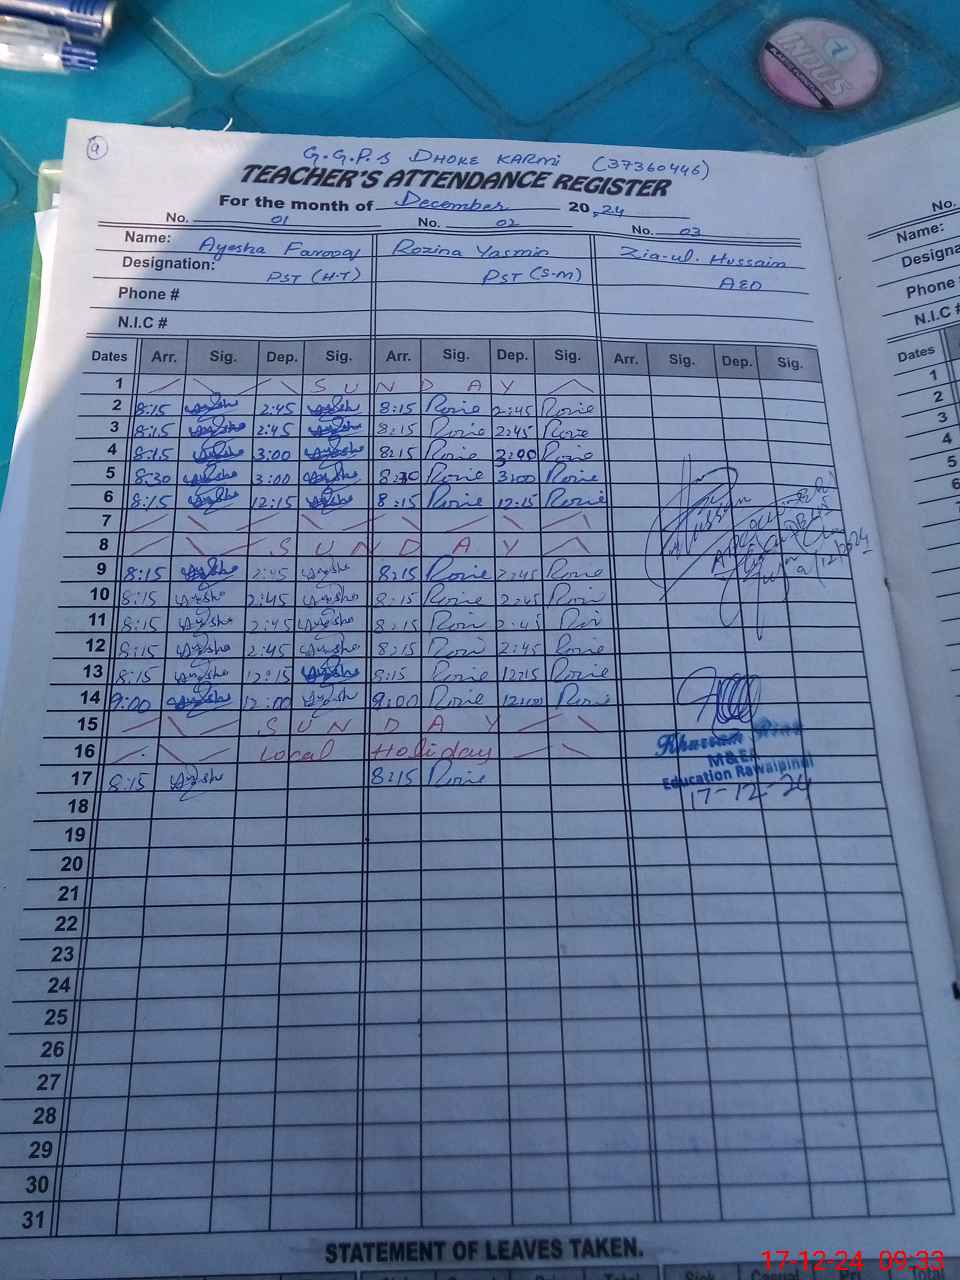 9
G.G.P.S DHOKE KARMI (37360446)
TEACHER'S ATTENDANCE REGISTER
For the month of December 2024
No. 01 No. 02 No. 03
Name: Ayesha Farooq Rozina Yasmin Zia-ul. Hussain
Designation: PST (H-T) PST (S-M) AEO
Phone #
N.I.C #
Dates Arr. Sig. Dep. Sig. Arr. Sig. Dep. Sig. Arr. Sig. Dep. Sig.
1 SUNDAY
2 8:15 Ayesha 2:45 Ayesha 8:15 Rozie 2:45 Rozie
3 8:15 Ayesha 2:45 Ayesha 8:15 Rozie 2:45 Rozie
4 8:15 Ayesha 3:00 Ayesha 8:15 Rozie 3:00 Rozie
5 8:30 Ayesha 3:00 Ayesha 8:30 Rozie 3:00 Rozie
6 8:15 Ayesha 12:15 Ayesha 8:15 Rozie 12:15 Rozie
7
8 SUNDAY
9 8:15 Ayesha 2:45 Ayesha 8:15 Rozie 2:45 Rozie
10 8:15 Ayesha 2:45 Ayesha 8:15 Rozie 2:45 Rozie
11 8:15 Ayesha 2:45 Ayesha 8:15 Rozie 2:45
12 8:15 Ayesha 2:45 Ayesha 8:15 Rozie 2:45 Rozie
13 8:15 Ayesha 12:15 Ayesha 8:15 Rozie 12:15 Rozie
14 9:00 Ayesha 12:00 Ayesha 9:00 Rozie 12:00 Rozie
15 SUNDAY
16 Local Holiday
17 8:15 Ayesha 8:15 Rozie
M&EA
Education Rawalpindi
17-12-24
18
19
20
21
22
23
24
25
26
27
28
29
30
31
STATEMENT OF LEAVES TAKEN.
No.
Name:
Phone #
N.I.C #
Dates
1
2
3
4
5
6
INDUS
17-12-24 09:33